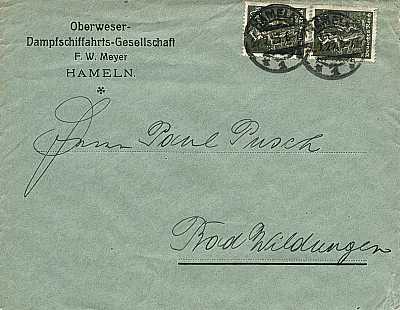 Oberweser-
Dampfschiffahrts-Gesellschaft
F. W. Meyer
HAMELN.
HAMELN
HAMELN
Herrn Paul Pusch
Bad Wildungen